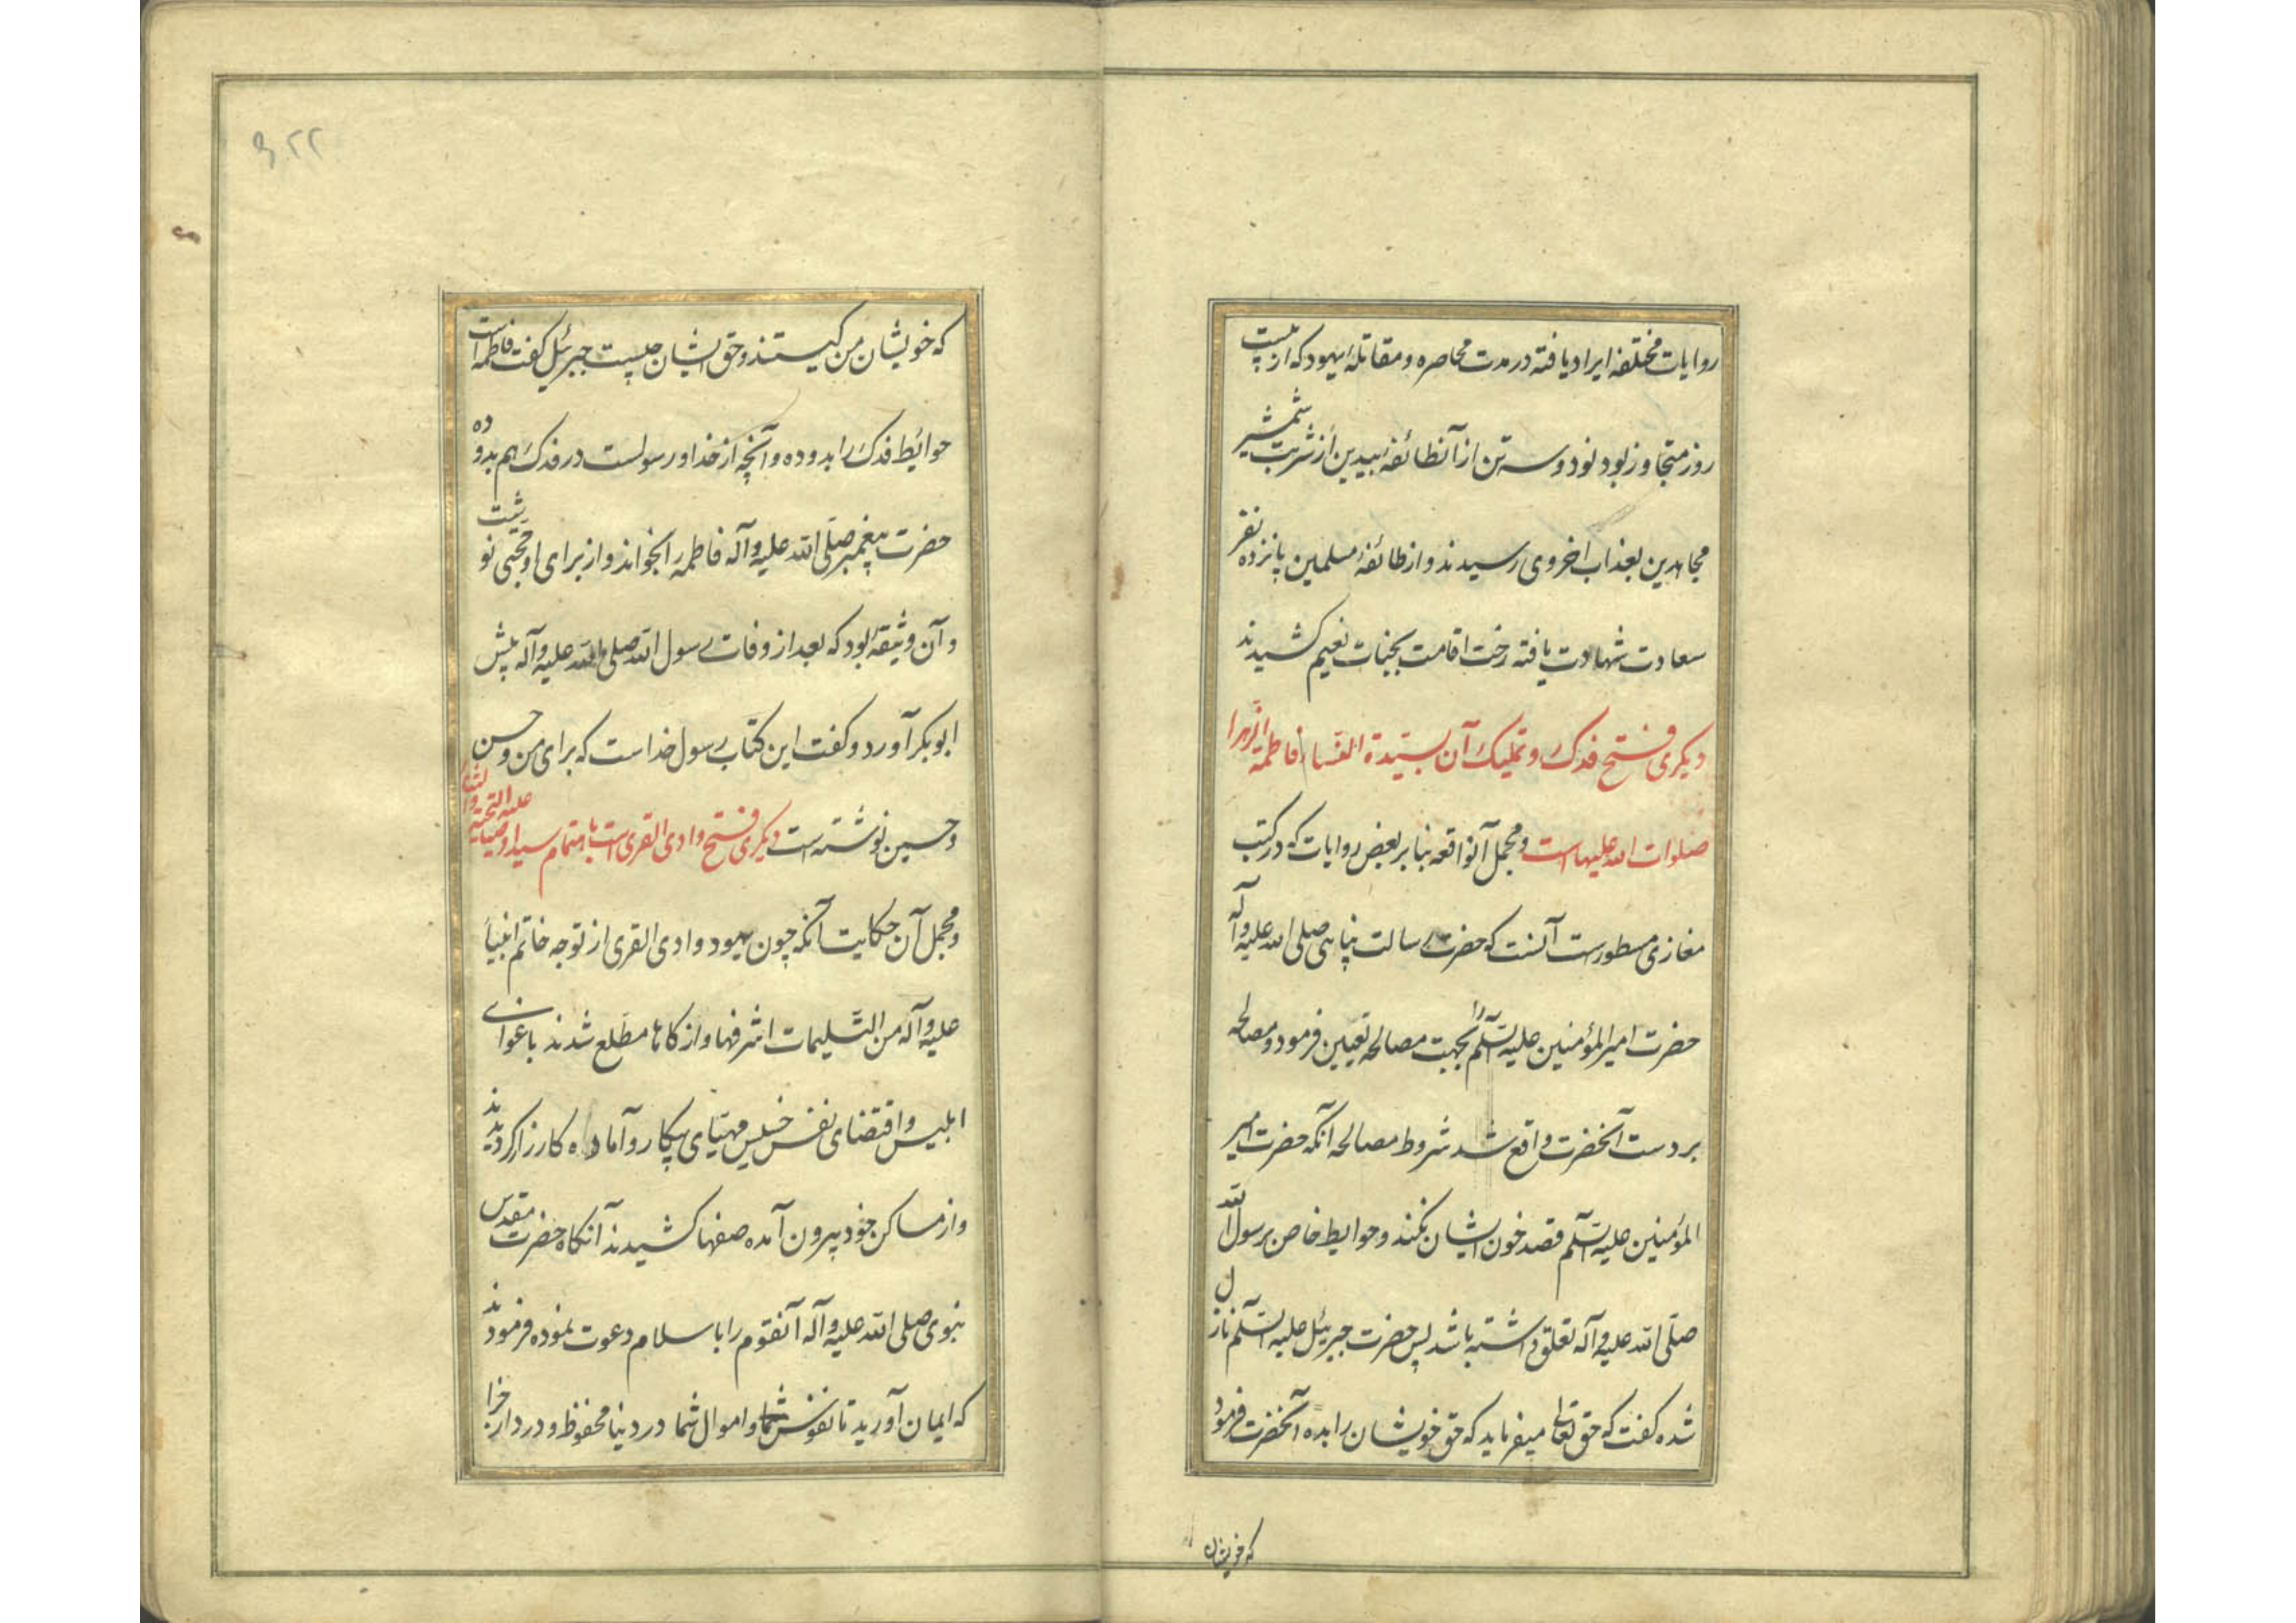 روایات مختلفه ایراد یافته در مدت محاصره و مقاتلهٔ یهود که از بیست
روز متجاوز بود نود و سه تن از آنطائفهٔ بیدین از شربت شمشیر
مجاهدین بعذاب اخروی رسیدند و از طائفهٔ مسلمین پانزده نفر
سعادت شهادت یافته رخت اقامت بجنات نعیم کشیدند
دیکری فتح فدک و تملیک آن بسیّدة النساء فاطمة الزهرا
صلوات الله علیها است و مجمل آنواقعه بنا بر بعض روایات که در کتب
مغازی مسطورست آنست که حضرت رسالت پناهی صلی الله علیه وآله
حضرت امیر المؤمنین علیه السلم را بجهت مصالحه تعیین فرمود و مصالحه
بر دست آنحضرت واقع شد شروط مصالحه آنکه حضرت امیر
المؤمنین علیه السلم قصد خون ایشان نکند و حوایط خاص برسول الله
صلّی الله علیه وآله تعلق داشته باشد پس حضرت جبرئیل علیه السلم نازل
شده کفت که حق تعالی میفرماید که حق خویشان را بده آنحضرت فرمود
که خویشان
۳۲۲
که خویشان من کیستند و حق ایشان چیست جبرئیل کفت فاطمه است
حوائط فدک را بدو ده و آنچه از خدا و رسولست در فدک هم بدو ده
حضرت پیغمبر صلّی الله علیه وآله فاطمه را بخواند و از برای او حجتی نوشت
و آن وثیقهٔ بود که بعد از وفات رسول الله صلی الله علیه وآله پیش
ابوبکر آورد و کفت این کتاب رسول خداست که برای من و حسن
و حسین نوشته است دیکری فتح وادی القری است باهتمام سید اوصیا علیه التحیة والثناء
و مجمل آن حکایت آنکه چون یهود وادی القری از توجه خاتم انبیا
علیه وآله من التسلیمات اشرفها و ازکاها مطّلع شدند باغوای
ابلیس و اقتضای نفس خسیس مهیّای پیکار و آماده کارزار کردیدند
و از مساکن خود بیرون آمده صفها کشیدند آنکاه حضرت مقدس
نبوی صلی الله علیه وآله آنقوم را باسلام دعوت نموده فرمودند
که ایمان آورید تا نفوس شما و اموال شما در دنیا محفوظ و در دار جزا